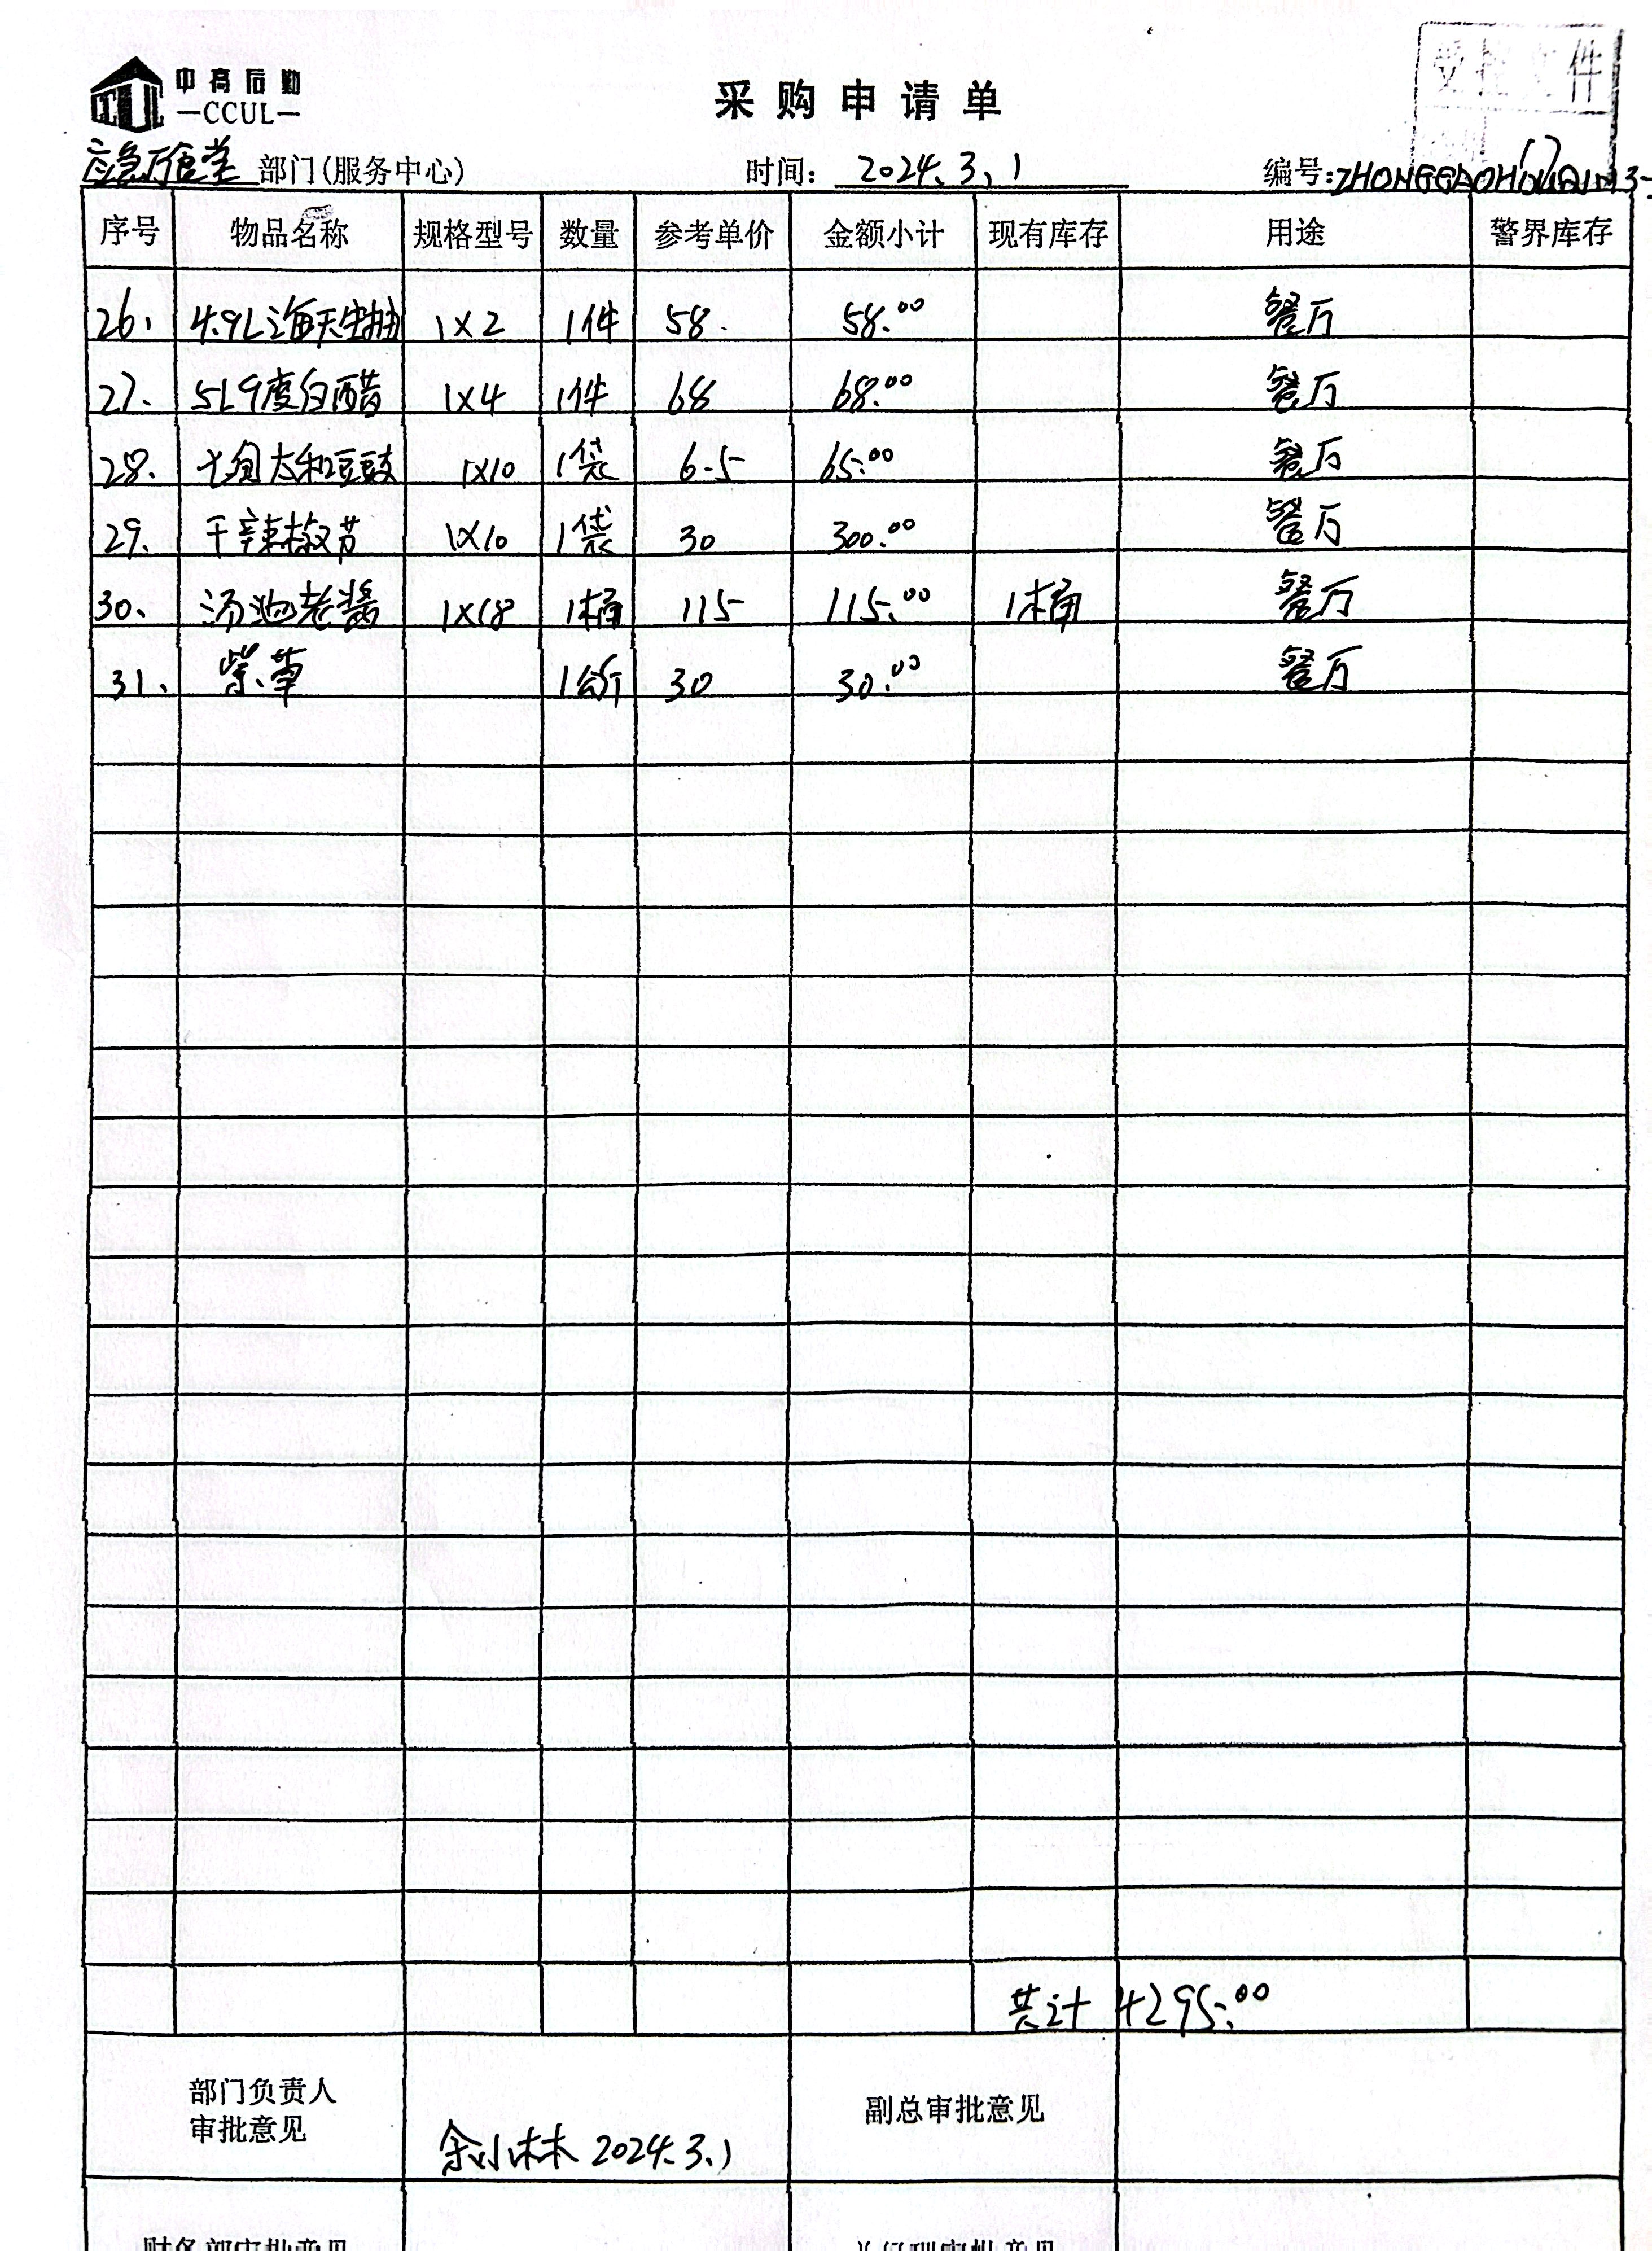 中高后勤
—CCUL—
采购申请单
受控文件
应急厅食堂 部门(服务中心) 时间: 2024.3.1 编号:ZHONGGAOHOUQIN3-
序号 物品名称 规格型号 数量 参考单价 金额小计 现有库存 用途 警界库存
26. 4.9L海天生抽 1×2 1件 58. 58.00 餐厅
27. 5L9度白醋 1×4 1件 68 68.00 餐厅
28. 太和豆豉 1×10 1袋 6.5 65.00 餐厅
29. 干辣椒节 1×10 1袋 30 300.00 餐厅
30. 汤池老酱 1×18 1桶 115 115.00 1桶 餐厅
31. 紫草 1公斤 30 30.00 餐厅
共计 4295.00
部门负责人
审批意见
余小林 2024.3.1
副总审批意见
财务部审批意见